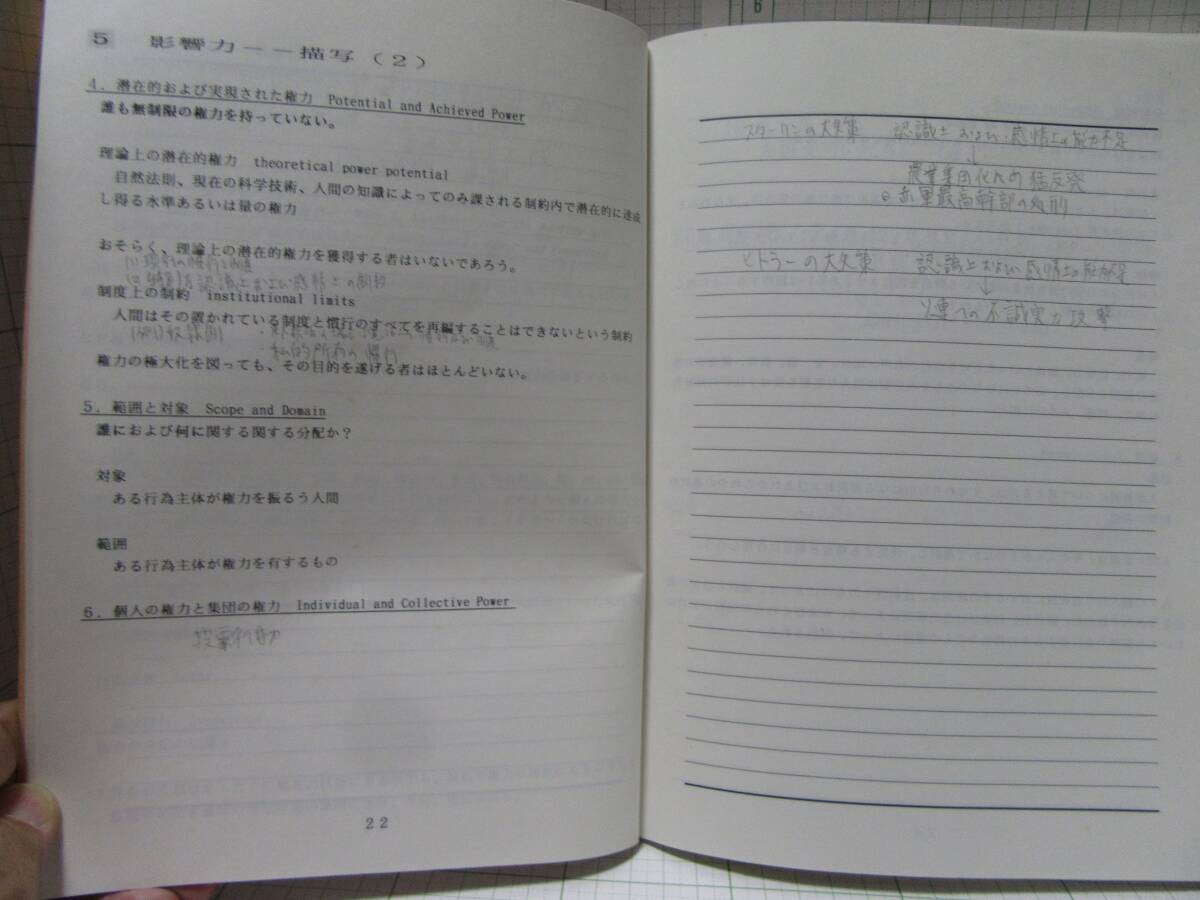 6
5 影響力ーー描写(2)
4．潜在的および実現された権力 Potential and Achieved Power
誰も無制限の権力を持っていない。
理論上の潜在的権力 theoretical power potential
自然法則、現在の科学技術、人間の知識によってのみ課される制約内で潜在的に達成
し得る水準あるいは量の権力
おそらく、理論上の潜在的権力を獲得する者はいないであろう。
認識上および感情上の制約
制度上の制約 institutional limits
人間はその置かれている制度と慣行のすべてを再編することはできないという制約
・私的所有の慣行
権力の極大化を図っても、その目的を遂げる者はほとんどいない。
5．範囲と対象 Scope and Domain
誰におよび何に関する関する分配か？
対象
ある行為主体が権力を振るう人間
範囲
ある行為主体が権力を有するもの
6．個人の権力と集団の権力 Individual and Collective Power
投票行動
22
スターリンの大失策 認識上および感情上の能力不足
↓
農業集団化への猛反発
赤軍最高幹部の処刑
ヒトラーの大失策 認識上および感情上の能力不足
↓
ソ連への不誠実な攻撃